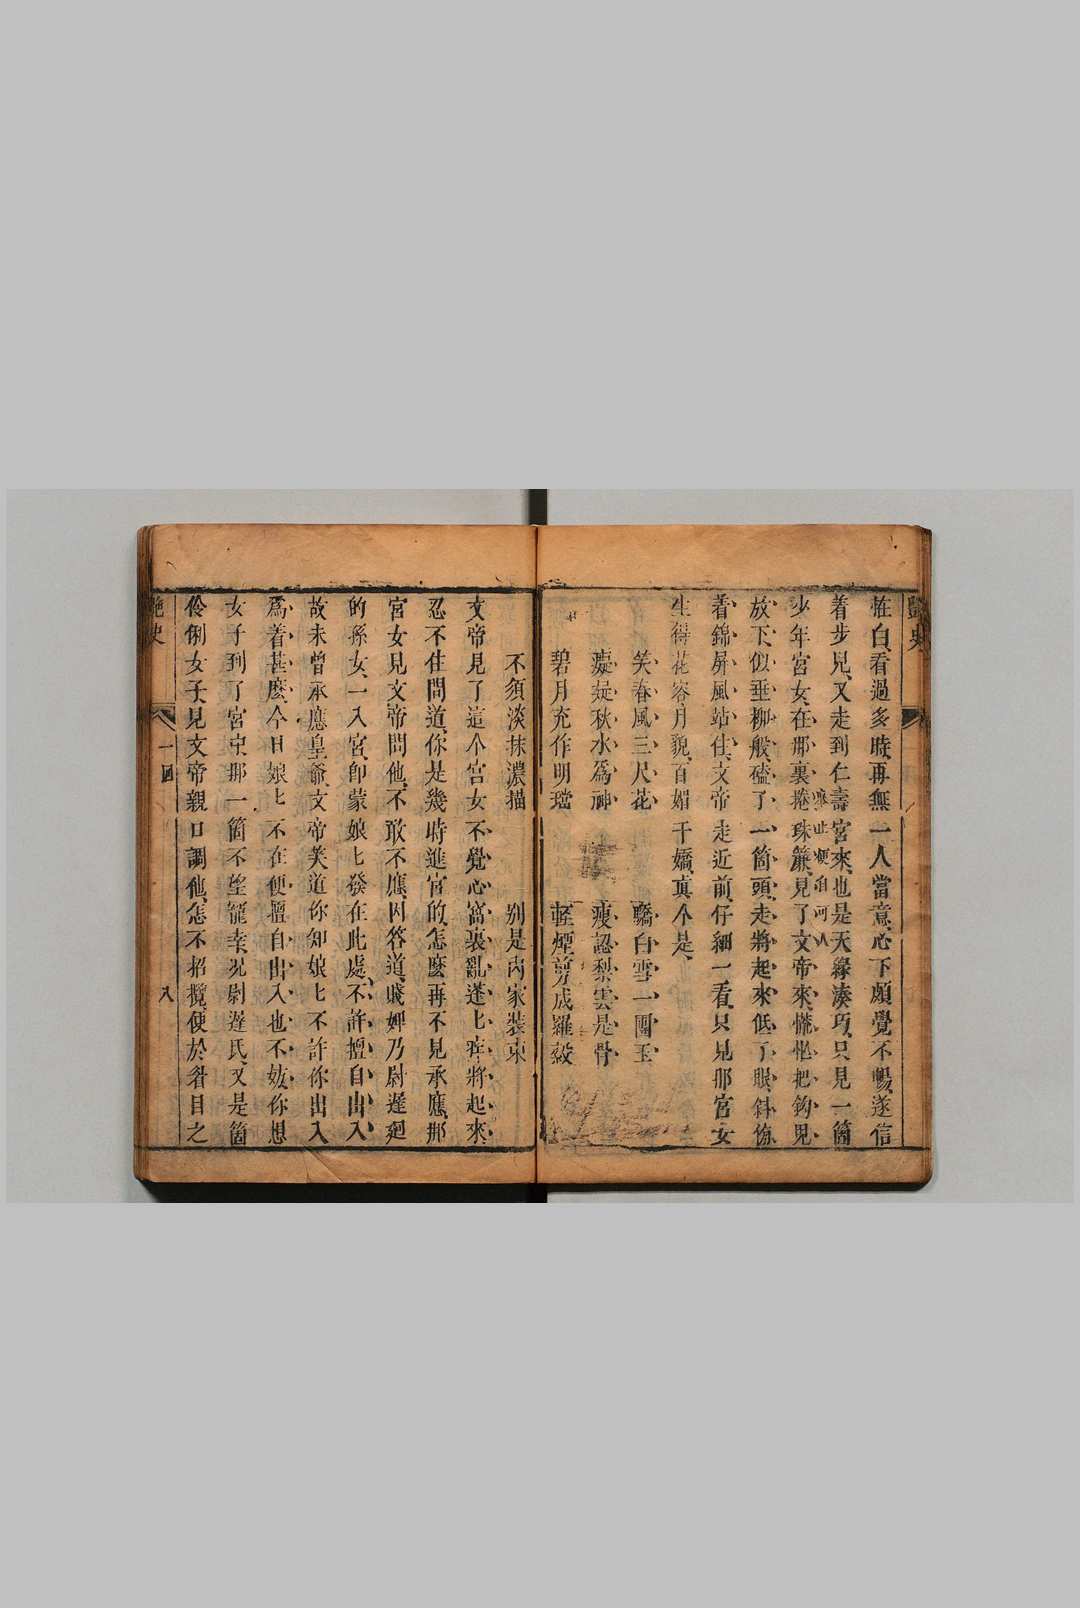 艷史
粧白看過多時再無一人當意心下頗覺不暢遂信
着步兒又走到仁壽宮來也是天緣湊巧只見一箇
少年宮女在那裏捲珠簾見了文帝來慌忙把鈎兒
放下似垂柳般磕了一箇頭走將起來低了眼斜傍
着錦屏風站住文帝走近前仔細一看只見那宮女
生得花容月貌百媚千嬌真个是
笑春風三尺花 驕白雪一團玉
癡凝秋水為神 瘦認梨雲是骨
碧月充作明璫 輕煙剪成羅縠
不須淡抹濃描 別是內家裝束
文帝見了這个宮女不覺心窩裏亂蓬匕痒將起來
忍不住問道你是幾時進宮的怎麼再不見承應那
宮女見文帝問他不敢不應因答道賤婢乃尉遲廻
的孫女一入宮即蒙娘匕發在此處不許擅自出入
故未曾承應皇爺文帝笑道你知娘匕不許你出入
為着甚麼今日娘匕不在便擅自出入也不妨你想
女子到了宮中那一箇不望寵幸况尉遲氏又是箇
伶俐女子見文帝親口調他怎不招攬便於眉目之
艷史 一回 八